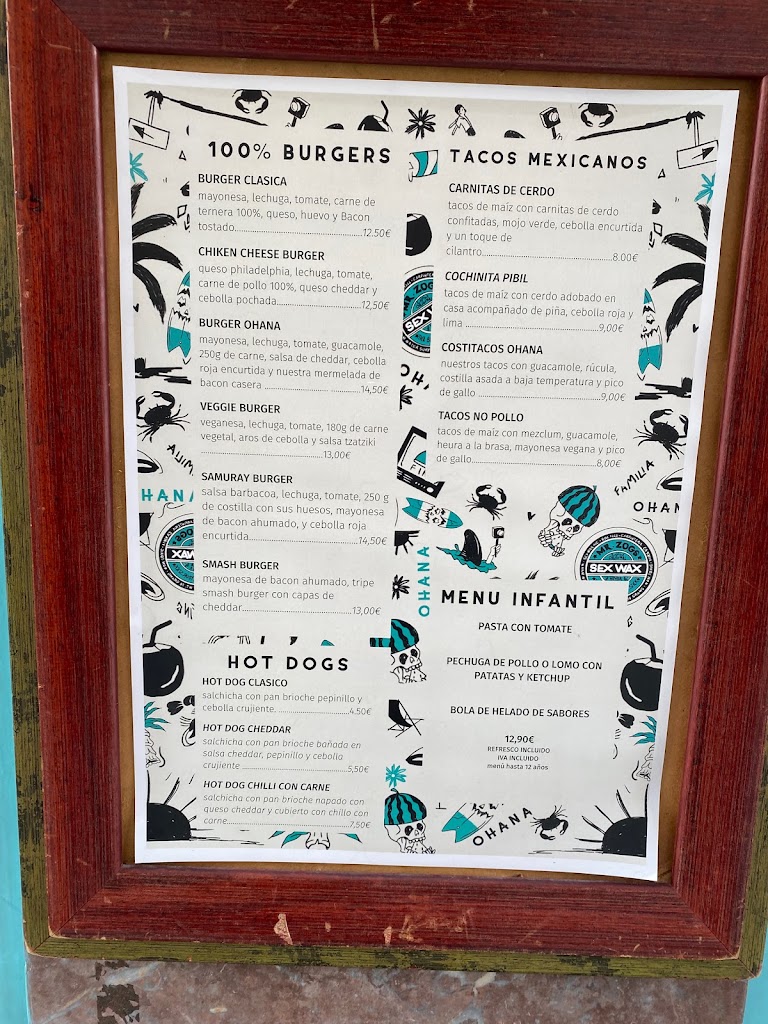 100% BURGERS
BURGER CLASICA
mayonesa, lechuga, tomate, carne de
ternera 100%, queso, huevo y Bacon
tostado...............................................12.50€
CHIKEN CHEESE BURGER
queso philadelphia, lechuga, tomate,
carne de pollo 100%, queso cheddar y
cebolla pochada...............................12,50€
BURGER OHANA
mayonesa, lechuga, tomate, guacamole,
250g de carne, salsa de cheddar, cebolla
roja encurtida y nuestra mermelada de
bacon casera ........................ ...........14,50€
VEGGIE BURGER
veganesa, lechuga, tomate, 180g de carne
vegetal, aros de cebolla y salsa tzatziki
..............................................13,00€
SAMURAY BURGER
salsa barbacoa, lechuga, tomate, 250 g
de costilla con sus huesos, mayonesa
de bacon ahumado, y cebolla roja
encurtida.........................................14,50€
SMASH BURGER
mayonesa de bacon ahumado, tripe
smash burger con capas de
cheddar.........................................13,00€
HOT DOGS
HOT DOG CLASICO
salchicha con pan brioche pepinillo y
cebolla crujiente. ..........................4.50€
HOT DOG CHEDDAR
salchicha con pan brioche bañada en
salsa cheddar, pepinillo y cebolla
crujiente .......................................5,50€
HOT DOG CHILLI CON CARNE
salchicha con pan brioche napado con
queso cheddar y cubierto con chillo con
carne..............................................7,50€
TACOS MEXICANOS
CARNITAS DE CERDO
tacos de maíz con carnitas de cerdo
confitadas, mojo verde, cebolla encurtida
y un toque de
cilantro................................................8.00€
COCHINITA PIBIL
tacos de maíz con cerdo adobado en
casa acompañado de piña, cebolla roja y
lima .................................................9,00€
COSTITACOS OHANA
nuestros tacos con guacamole, rúcula,
costilla asada a baja temperatura y pico
de gallo .............................................9,00€
TACOS NO POLLO
tacos de maíz con mezclum, guacamole,
heura a la brasa, mayonesa vegana y pico
de gallo..............................................8,00€
FAMILIA
OHANA
MR ZOGS
SEX WAX
OHANA
MENU INFANTIL
PASTA CON TOMATE
PECHUGA DE POLLO O LOMO CON
PATATAS Y KETCHUP
BOLA DE HELADO DE SABORES
12,90€
REFRESCO INCLUIDO
IVA INCLUIDO
menú hasta 12 años
OHANA